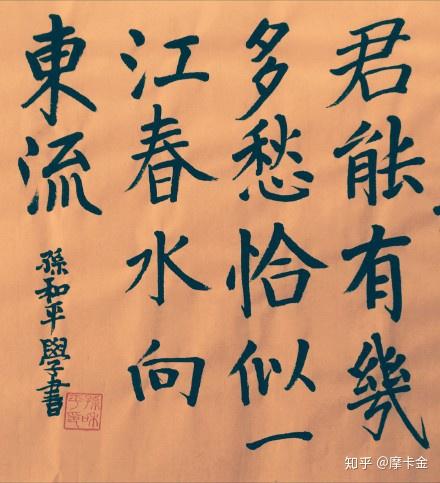 君能有幾
多愁恰似一
江春水向
東流
孫和平學書
孫和
平印
知乎 @摩卡金